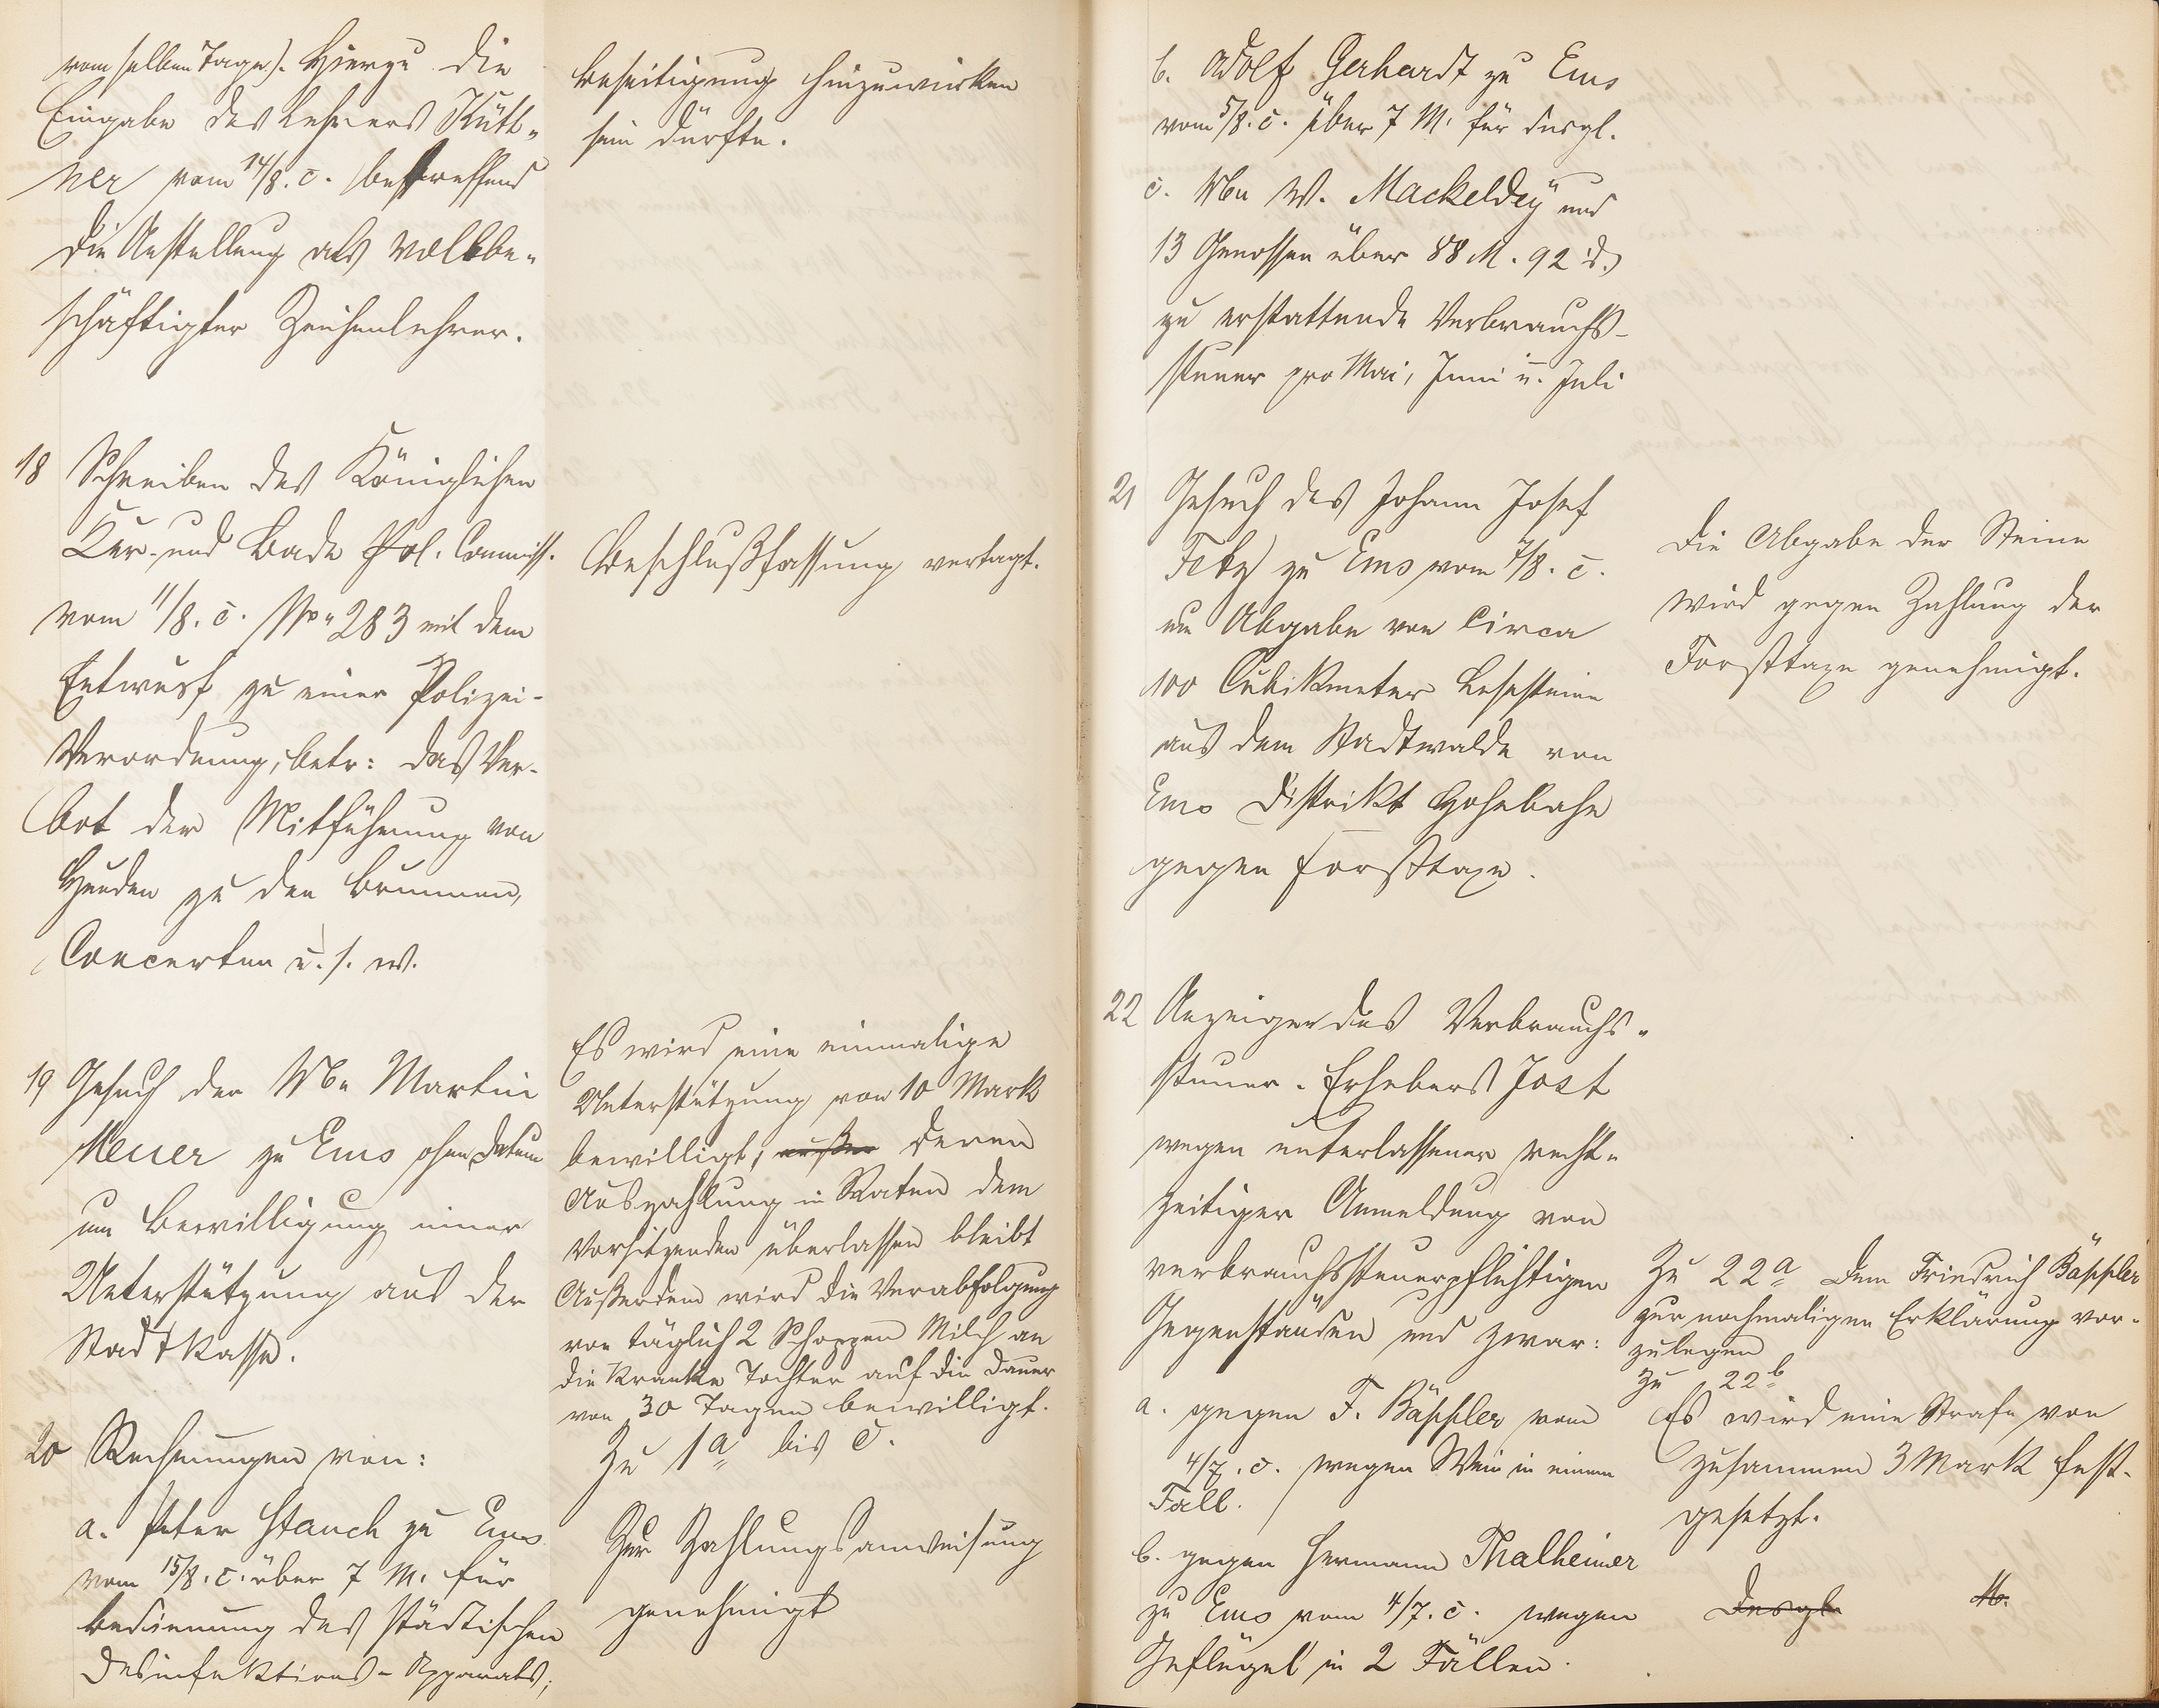 vom selben Tage). Hierzu die
Eingabe des Lehrers Kütt-
ner vom 14/8. c. betreffend
die Anstellung als vollbe-
schäftigter Zeichenlehrer.
beseitigung hinzuwirken
sein dürfte.
18 Schreiben des Königlichen
Kur- und Bade Pol. Commiss.
vom 11/8. c. No 283 mit dem
Entwurf zu einer Polizei-
Verordnung, betr: das Ver-
bot der Mitführung von
Hunden zu den Brunnen,
Concerten u. s. w.
Beschlußfassung vertagt.
19 Gesuch der Wwe Martin
Meuer zu Ems ohne Datum
um Bewilligung einer
Unterstützung aus der
Stadtkasse.
Es wird eine einmalige
Unterstützung von 10 Mark
bewilligt, außer deren
Auszahlung in Raten dem
Vorsitzenden überlassen bleibt
Außerdem wird die Verabfolgung
von täglich 2 Schoppen Milch an
die kranke Tochter auf die Dauer
von 30 Tagen bewilligt.
20 Rechnungen von:
a. Peter Stauch zu Ems
vom 15/8. c. über 7 M. für
Bedienung des städtischen
Desinfektions-Apparats,
Zu 1a bis c.
Zur Zahlungsanweisung
genehmigt
b. Adolf Gerhardt zu Ems
vom 5/8. c. über 7 M. für desgl.
c. Wwe W. Mackeldey und
13 Genossen über 88 M. 92 d.
zu erstattende Verbrauchs-
steuer pro Mai, Juni u. Juli
21 Gesuch des Johann Josef
Fetz zu Ems vom 7/8. c.
um Abgabe von circa
100 Cubikmeter Lesesteine
aus dem Stadtwalde von
Ems Distrikt Hohebahn
gegen Forsttaxe.
Die Abgabe der Steine
wird gegen Zahlung der
Forsttaxe genehmigt.
22 Anzeigen des Verbrauchs-
steuer-Erhebers Jost
wegen unterlassener recht-
zeitiger Anmeldung von
verbrauchssteuerpflichtigen
Gegenständen und zwar:
a. gegen F. Bäppler vom
4/7. c. wegen Wein in einem
Fall.
b. gegen Hermann Thalheimer
zu Ems vom 4/7. c. wegen
Geflügel in 2 Fällen.
Zu 22a dem Friedrich Bäppler
zur nochmaligen Erklärung vor-
zulegen
Zu 22b
Es wird eine Strafe von
zusammen 3 Mark fest-
gesetzt.
Desgl.